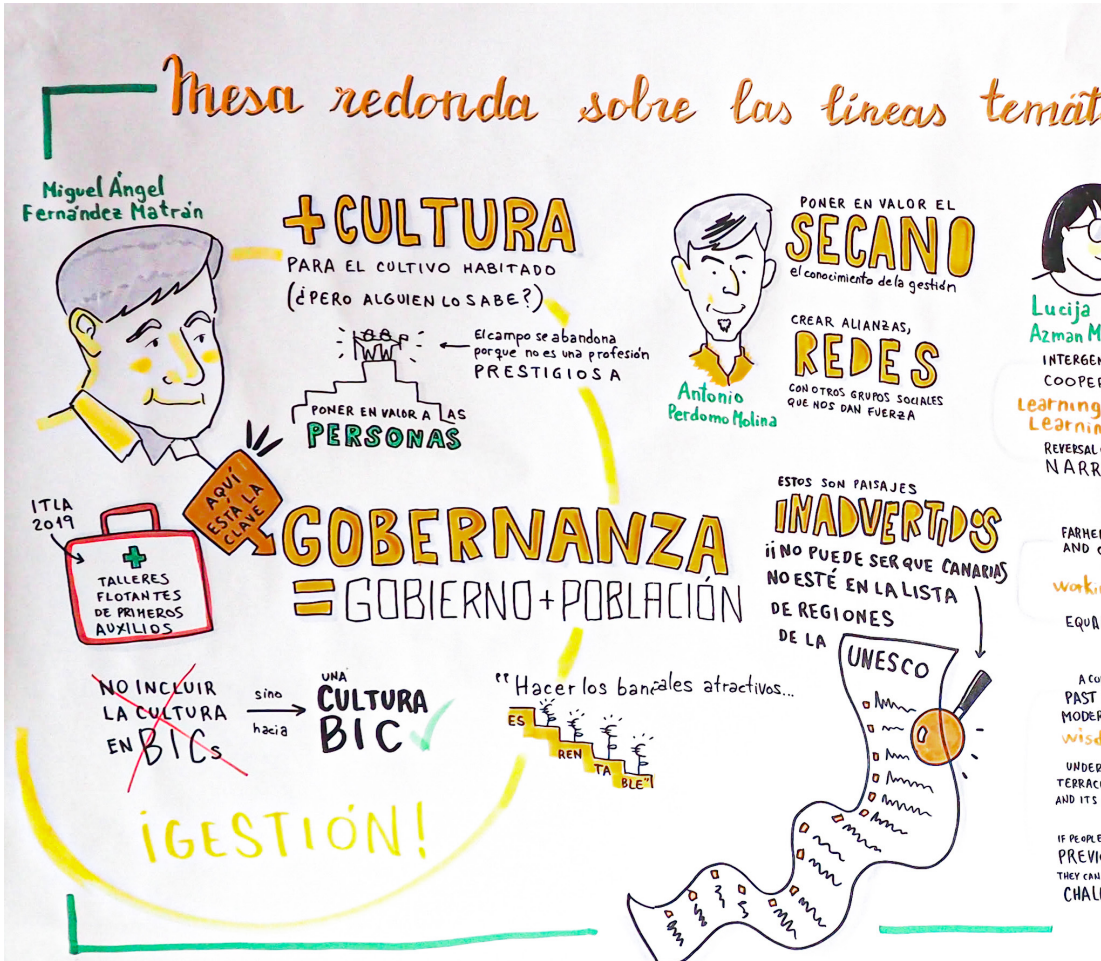 Mesa redonda sobre las líneas temát
Miguel Ángel
Fernández Matrán
+CULTURA
PARA EL CULTIVO HABITADO
(¿PERO ALGUIEN LO SABE?)
El campo se abandona
porque no es una profesión
PRESTIGIOSA
PONER EN VALOR A LAS
PERSONAS
AQUÍ
ESTÁ LA
CLAVE
ITLA
2019
TALLERES
FLOTANTES
DE PRIMEROS
AUXILIOS
GOBERNANZA
=GOBIERNO+POBLACIÓN
NO INCLUIR
LA CULTURA
EN BICs
sino
hacia
UNA
CULTURA
BIC
¡GESTIÓN!
PONER EN VALOR EL
SECANO
el conocimiento de la gestión
CREAR ALIANZAS,
REDES
CON OTROS GRUPOS SOCIALES
QUE NOS DAN FUERZA
Antonio
Perdomo Molina
ESTOS SON PAISAJES
INADVERTIDOS
¡¡NO PUEDE SER QUE CANARIAS
NO ESTÉ EN LA LISTA
DE REGIONES
DE LA
UNESCO
"Hacer los bancales atractivos...
ES
REN
TA
BLE"
Lucija
Azman M
INTERGEN
COOPER
Learning
Learnin
REVERSAL
NARR
FARMER
AND
workin
EQUA
A CO
PAST
MODER
wisd
UNDER
TERRAC
AND ITS
IF PEOPLE
PREVIO
THEY CAN
CHALL